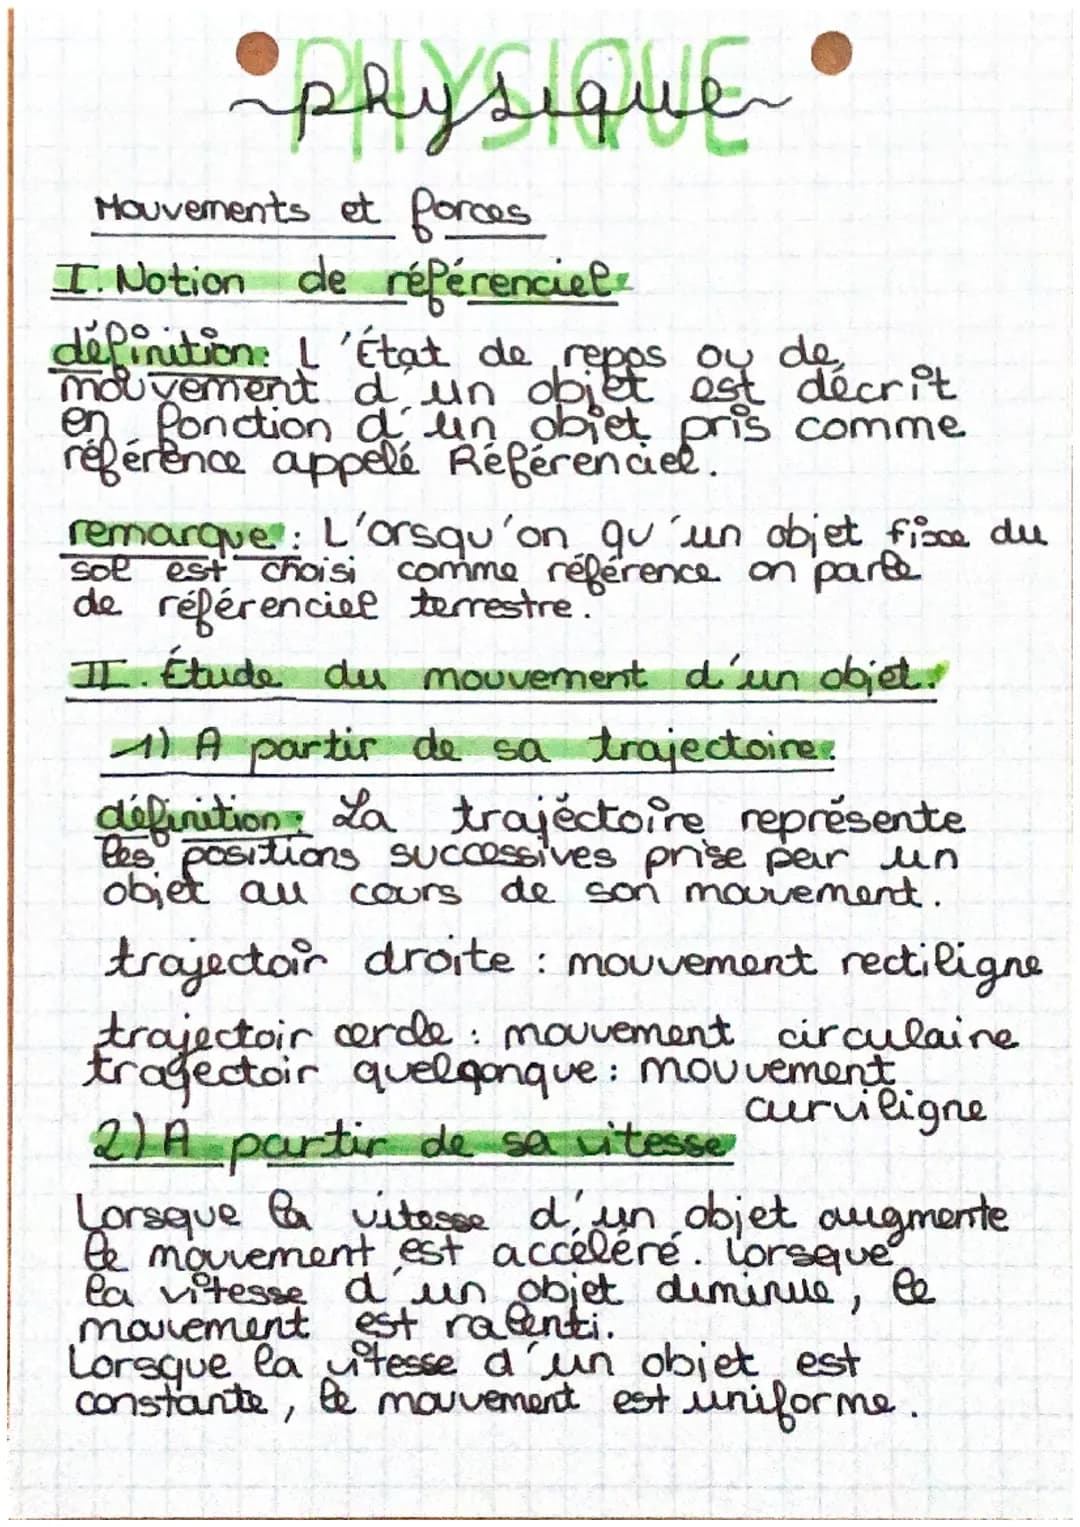 PHYSIQUE
physique
Mouvements et forces
I. Notion de référenciel
définition: L'État de repos ou de
mouvement d'un objet est décrit
en fonction d'un objet pris comme
référence appelé Référenciel.
remarque: L'orsqu'on qu'un objet fixe du
sol est choisi comme référence on parle
de référenciel terrestre.
II. Étude du mouvement d'un objet.
1) A partir de sa trajectoire.
définition: La trajéctoire représente
les positions successives prise par un
objet au cours de son mouvement.
trajectoir droite : mouvement rectiligne
trajectoir cercle : mouvement circulaire
tragectoir quelqonque : mouvement
curviligne
2) A partir de sa vitesse
Lorsque la vitesse d'un objet augmente
le mouvement est accéléré. Lorsque
la vitesse d'un objet diminue, le
mouvement est ralenti.
Lorsque la vitesse d'un objet est
constante, le mouvement est uniforme.